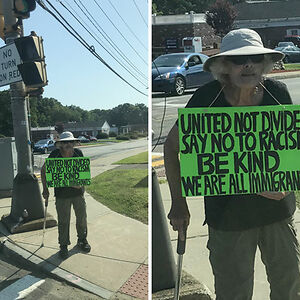 NO
TURN
ON RED
UNITED NOT DIVIDED
SAY NO TO RACISM
BE KIND
WE ARE ALL IMMIGRANTS
UNITED NOT DIVIDE
SAY NO TO RACIS
BE KIND
WE ARE ALL IMMIGRAN